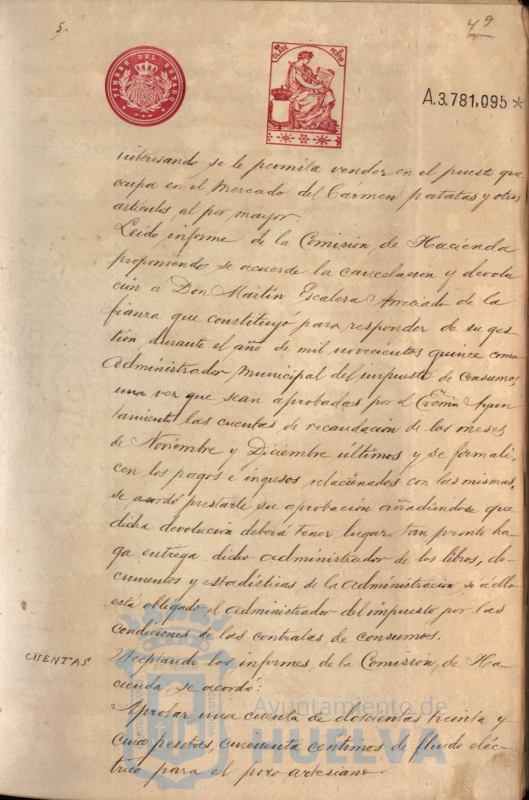 5.
49
TIMBRE DEL ESTADO
CLASE
A.3.781,095 *
interesando se le permita vender en el puesto que
ocupa en el Mercado del Carmen patatas y otros
artículos al por mayor.
Leido informe de la Comision de Hacienda
proponiendo se acuerde la cancelacion y devolu-
ción a Don Martín Escalera Preciado de la
fianza que constituyó para responder de su ges-
tión durante el año de mil novecientos quince como
Administrador Municipal del impuesto de Consumos,
una vez que sean aprobadas por el Excmo Ayun-
tamiento las cuentas de recaudación de los meses
de Noviembre y Diciembre últimos y se formali-
cen los pagos e ingresos relacionados con las mismas,
se acordó prestarle su aprobación añadiendose que
dicha devolución deberá tener lugar tan pronto ha-
ga entrega dicho administrador de los libros, do-
cumentos y estadísticas de la administracion si a ello
está obligado el administrador del impuesto por las
condiciones de las contratas de consumos.
CUENTAS.
Aceptando los informes de la Comision de Ha-
cienda, se acordó:
Aprobar una cuenta de doscientas treinta y
cinco pesetas, cincuenta centimos de fluido eléc-
trico para el pozo artesiano.
Ayuntamiento de
HUELVA